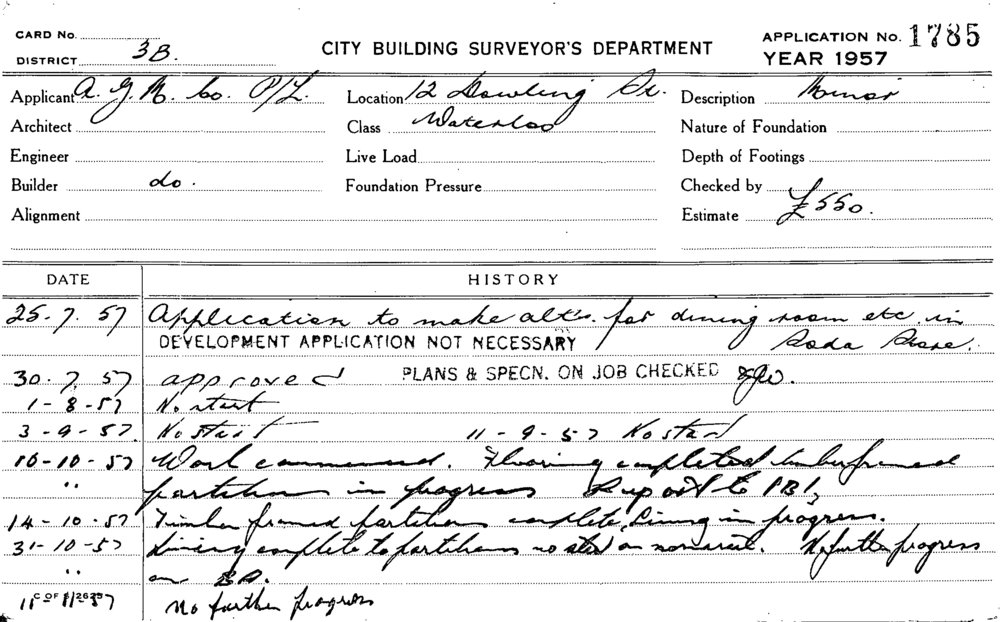 CARD No.
DISTRICT 3B.
CITY BUILDING SURVEYOR'S DEPARTMENT
APPLICATION No. 1785
YEAR 1957
Applicant A. G. M. Co. P/L.
Location 12 Dowling St.
Description Minor
Architect
Class Waterloo
Nature of Foundation
Engineer
Live Load
Depth of Footings
Builder do.
Foundation Pressure
Checked by
Alignment
Estimate £550.
DATE HISTORY
25.7.57 Application to make alt'ns. for dining room etc in
DEVELOPMENT APPLICATION NOT NECESSARY Soda Store.
30.7.57 approved PLANS & SPECN. ON JOB CHECKED
1-8-57 No start
3-9-57 No start 11-9-57 No start
10-10-57 Work commenced. Flooring completed timber framed
" partitions in progress Report to
14-10-57 Timber framed partitions complete, Lining in progress.
31-10-57 Lining complete to partitions no No further progress
" on
C OF S 2625
11-11-57 No further progress